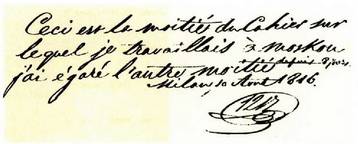 Ceci est la moitié du Cahier sur
lequel je travaillais à moskou
j'ai égaré l'autre moitié depuis 8 jours.
Milan 10 Aout 1816.